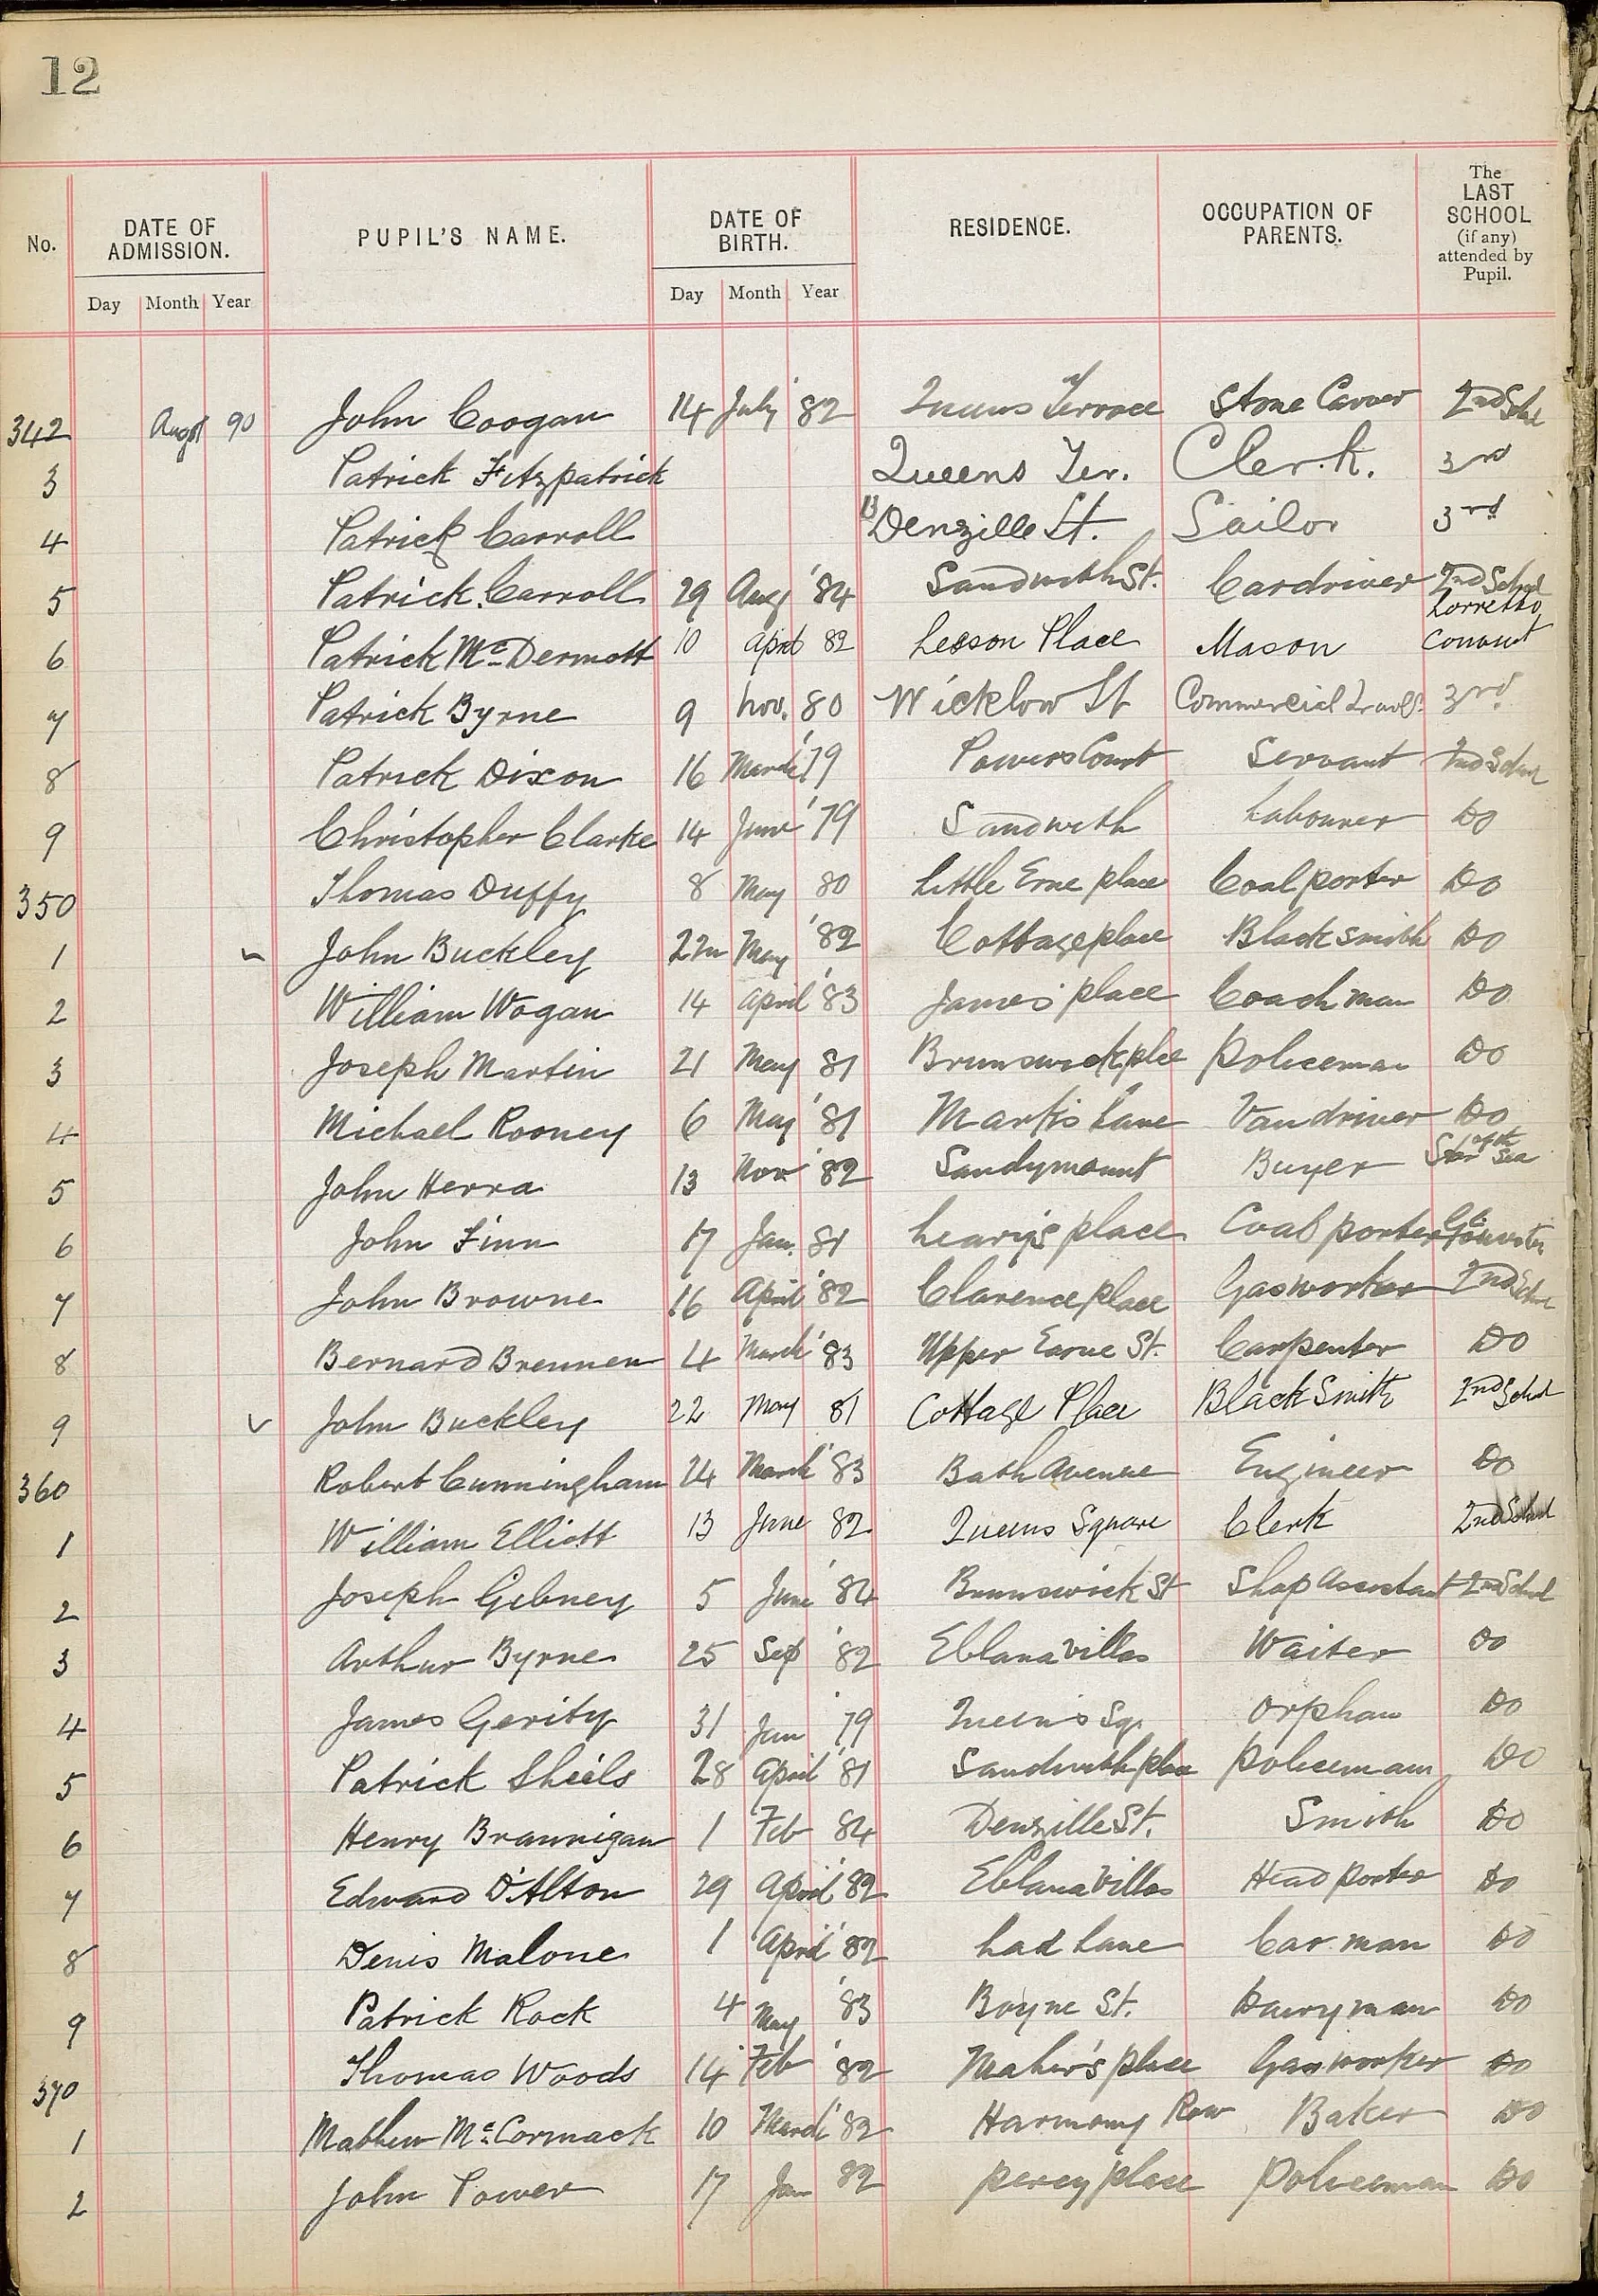 12
No. DATE OF ADMISSION. PUPIL'S NAME. DATE OF BIRTH. RESIDENCE. OCCUPATION OF PARENTS. The LAST SCHOOL (if any) attended by Pupil.
Day Month Year Day Month Year
342 Augst 90 John Coogan 14 July '82 Queens Terrace Stone Carver 2nd Schl
3 Patrick Fitzpatrick Queens Ter. Clerk. 3rd
4 Patrick Carroll 13 Denzille St. Sailor 3rd
5 Patrick Carroll 29 Aug '84 Sandwith St. Cardriver 2nd School
6 Patrick McDermott 10 April 82 Leeson Place Mason Lorretto Convent
7 Patrick Byrne 9 Nov. 80 Wicklow St Commercial 3rd
8 Patrick Dixon 16 March '79 Powers Court Servant 2nd Schol
9 Christopher Clarke 14 June '79 Sandwith Labourer Do
350 Thomas Duffy 8 May 80 Little Erne place Coal porter Do
1 John Buckley 22n May '82 Cottage place Blacksmith Do
2 William Wogan 14 April '83 James' place Coachman Do
3 Joseph Martin 21 May 81 Brunswick plce Policeman Do
4 Michael Rooney 6 May '81 Mark's Lane Vandriver Do
5 John Herra 13 Nov '82 Sandymount Buyer Star of the Sea
6 John Finn 17 Jan. 81 Leary's place Coal porter
7 John Browne 16 April '82 Clarence place Gasworker 2nd Schl
8 Bernard Brennen 4 March '83 Upper Earne St. Carpenter Do
9 John Buckley 22 May 81 Cottage Place Black Smith 2nd Schol
360 Robert Cunningham 24 March '83 Bath Avenue Engineer Do
1 William Elliott 13 June 82 Queens Square Clerk 2nd School
2 Joseph Gebney 5 June '84 Brunswick St Shop Assistant 2nd School
3 Arthur Byrne 25 Sep '82 Eblana Villas Waiter Do
4 James Gerity 31 Jan '79 Queen's Sqr. Orphan Do
5 Patrick Sheils 28 April '81 Sandwith plce Policeman Do
6 Henry Brannigan 1 Feb 84 Denzille St. Smith Do
7 Edward D'Alton 29 April '82 Eblana Villas Head porter Do
8 Denis Malone 1 April '82 Lad Lane Car man Do
9 Patrick Rock 4 May '83 Boyne St. Dairyman Do
370 Thomas Woods 14 Feb '82 Maher's place Gasworker Do
1 Mathew McCormack 10 March '82 Harmony Row Baker Do
2 John Power 17 Jan 82 Percy place Policeman Do